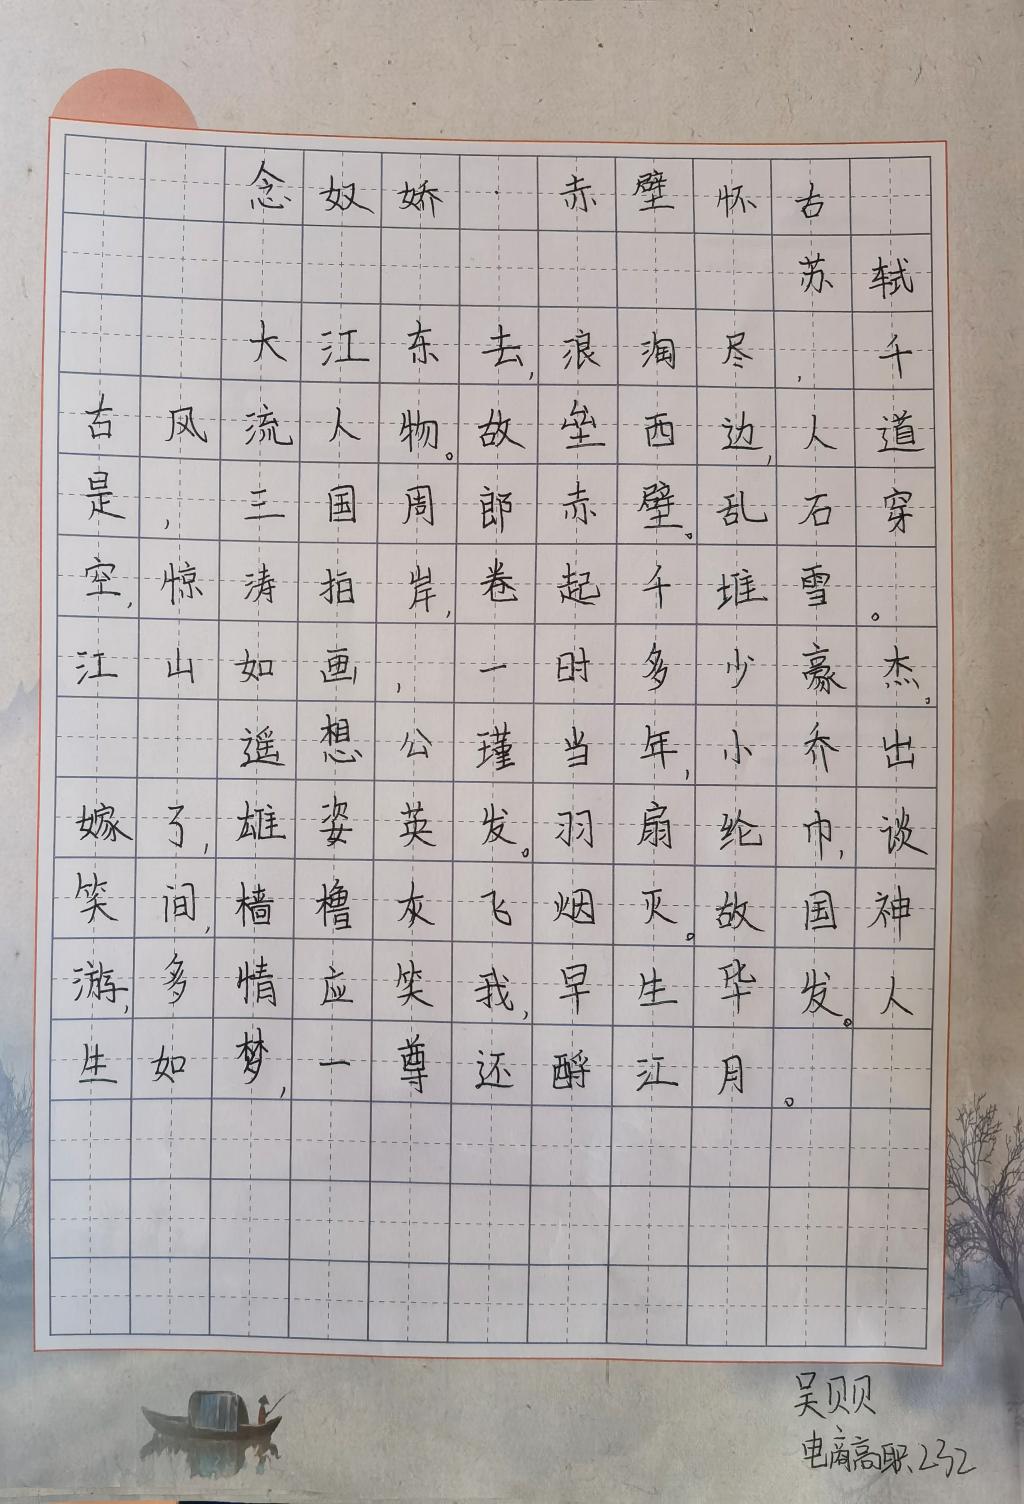 念奴娇·赤壁怀古
苏轼
大江东去,浪淘尽,千
古风流人物。故垒西边,人道
是,三国周郎赤壁。乱石穿
空,惊涛拍岸,卷起千堆雪。
江山如画,一时多少豪杰。
遥想公瑾当年,小乔出
嫁了,雄姿英发。羽扇纶巾,谈
笑间,樯橹灰飞烟灭。故国神
游,多情应笑我,早生华发。人
生如梦,一尊还酹江月。
吴贝贝
电商高职232